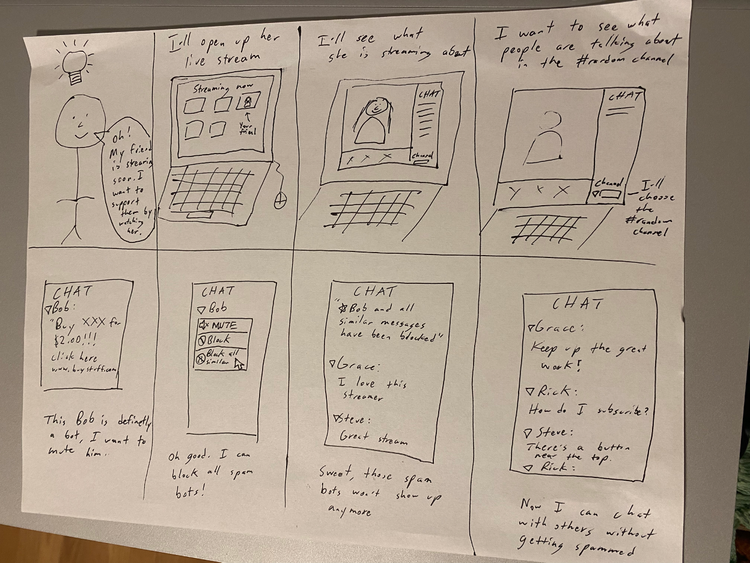 Oh!
My friend
is streaming
soon. I
want to
support
them by
watching
her.
I'll open up her
live stream
Streaming now
Your
friend
I'll see what
she is streaming about
CHAT
Channel
I want to see what
people are talking about
in the #random channel
CHAT
Channel
I'll
choose
the
#random
channel
CHAT
Bob:
"Buy XXX for
$2.00!!!
click here
www.buystuff.com
This Bob is definetly
a bot, I want to
mute him.
CHAT
Bob
MUTE
Block
Block all
similar
Oh good. I can
block all spam
bots!
CHAT
"Bob and all
similar messages
have been blocked"
Grace:
I love this
streamer
Steve:
Great stream
Sweet, those spam
bots won't show up
anymore
CHAT
Grace:
Keep up the great
work!
Rick:
How do I subscribe?
Steve:
There's a button
near the top.
Rick:
Now I can chat
with others without
getting spammed